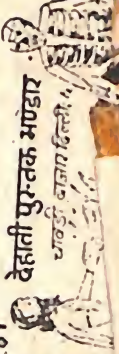 देहाती पुस्तक भण्डार
चावड़ी बाजार दिल्ली